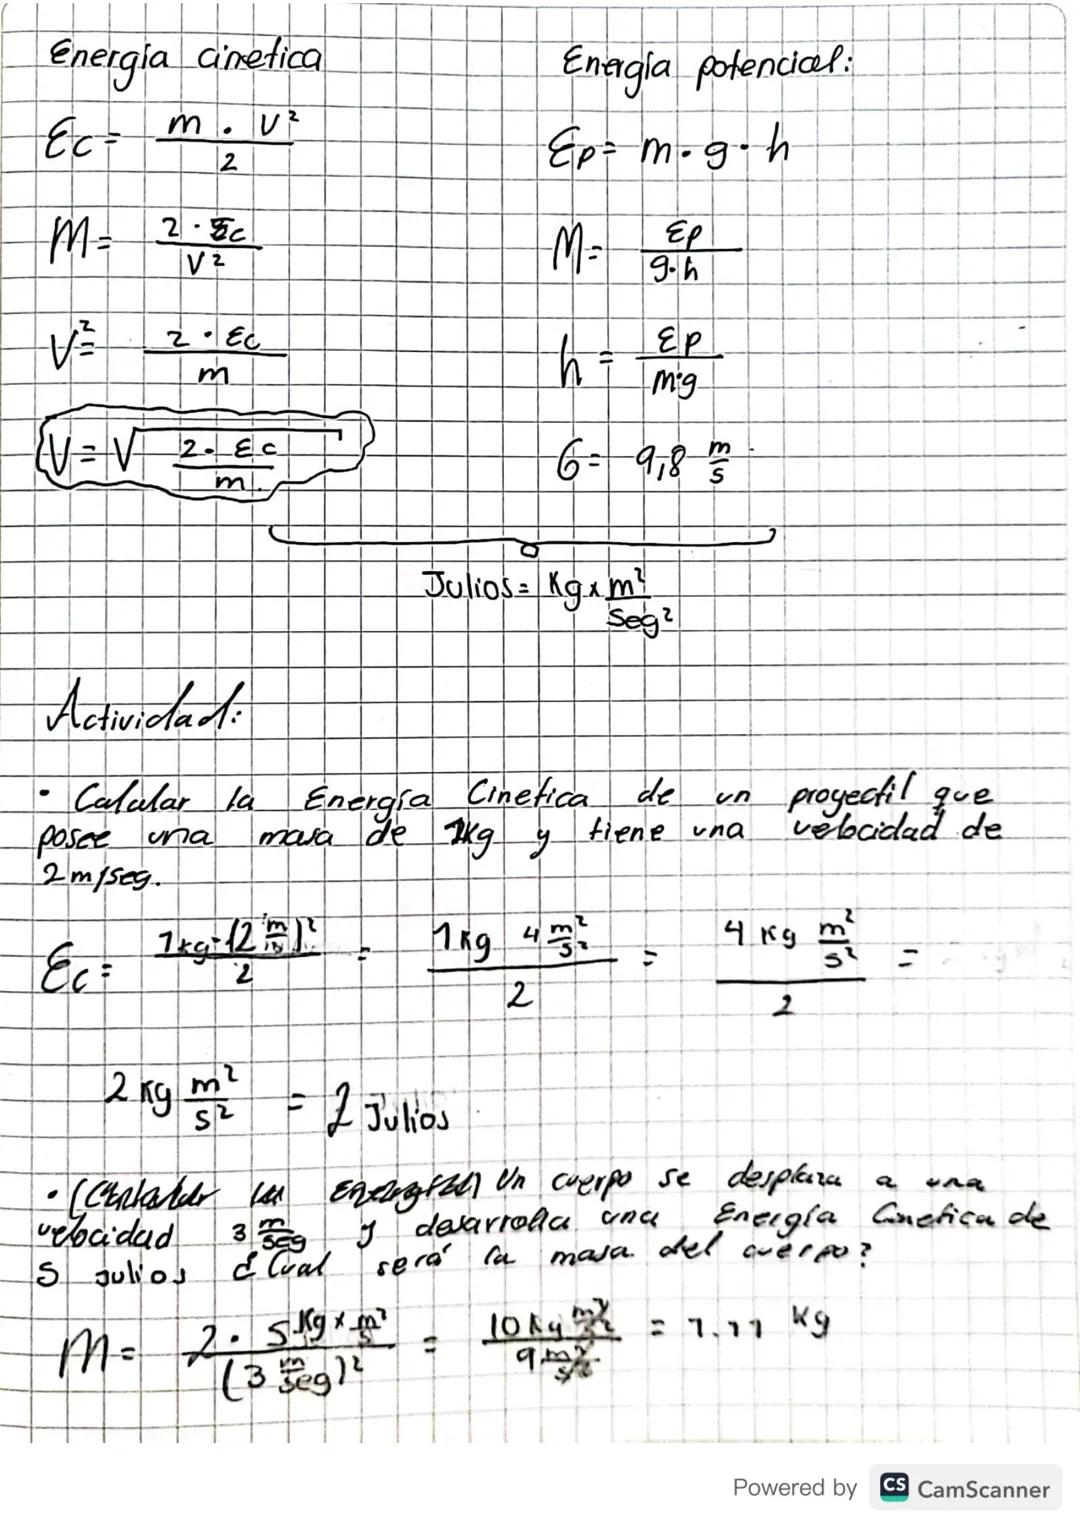 Energía cinetica
Ec = m . v² / 2
M = 2 · Ec / V²
V² = 2 · Ec / m
V = √ 2 · Ec / m
Energía potencial:
Ep = m · g · h
M = Ep / g·h
h = Ep / m·g
G = 9,8 m/s
Julios = Kg x m² / Seg²
Actividad:
• Calcular la Energía Cinetica de un proyectil que
posee una masa de 1kg y tiene una velocidad de
2 m/seg.
Ec = 1kg · (2 m/s)² / 2 = 1kg 4 m²/s² / 2 = 4 Kg m²/s² / 2 =
2 kg m²/s² = 2 Julios
• Un cuerpo se desplaza a una
velocidad 3 m/seg y desarrolla una Energía Cinetica de
5 julios ¿Cual será la masa del cuerpo?
M = 2 · 5 Kg x m²/s / (3 m/seg)² = 10 Kg m²/s² / 9 m²/s² = 1.11 kg
Powered by CS CamScanner